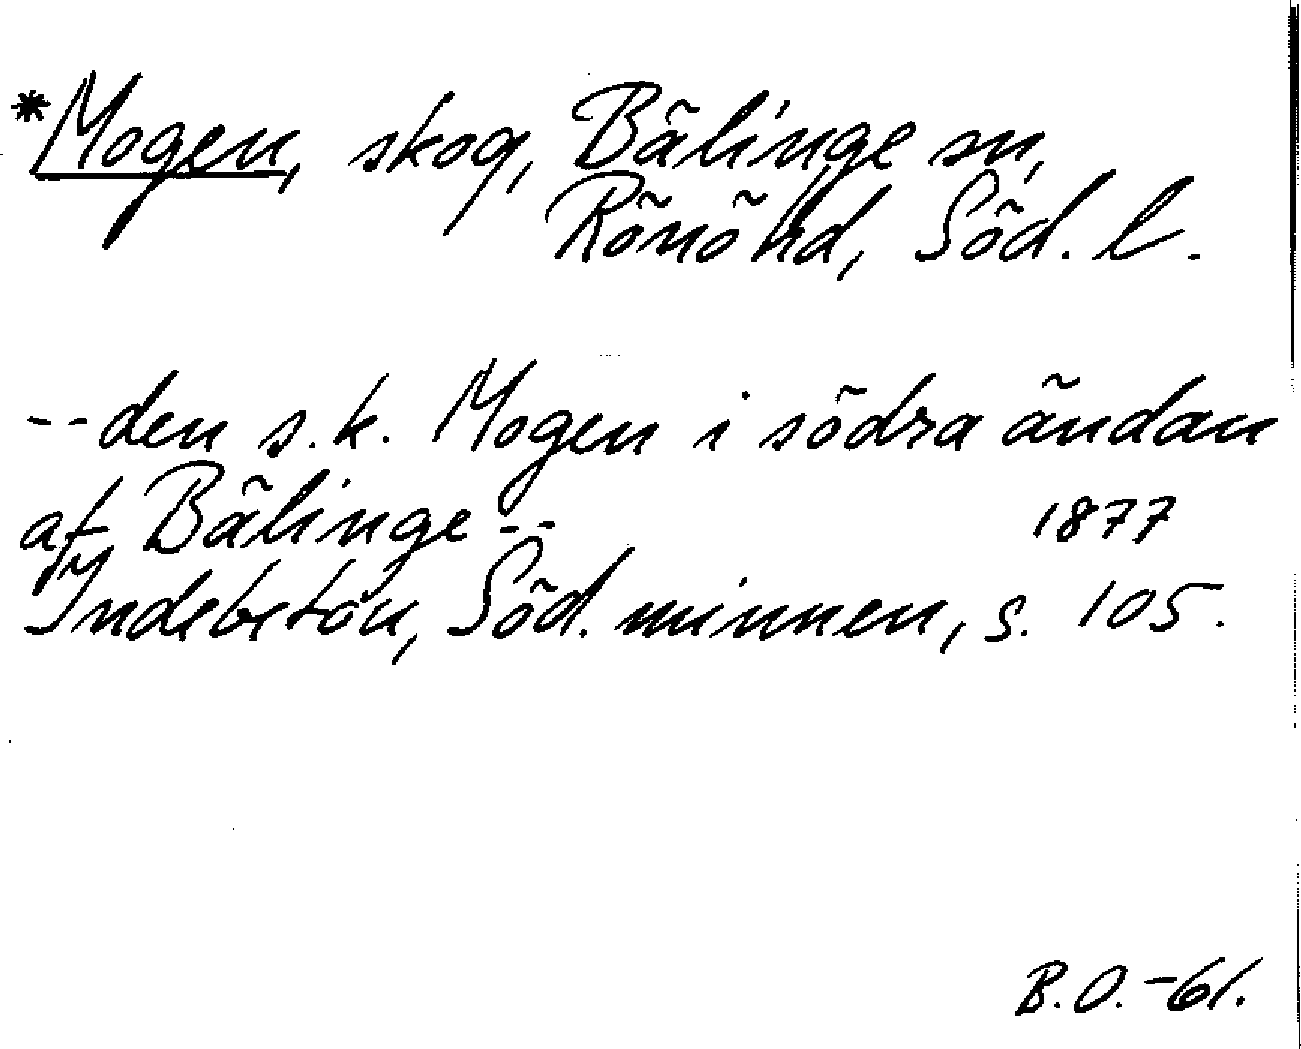 *Mogen, skog, Bälinge sn,
Rönö hd, Söd. l.
--den s.k. Mogen i södra ändan
af Bälinge-- 1877
Indebetou, Söd. minnen, s. 105.
B.O.-61.